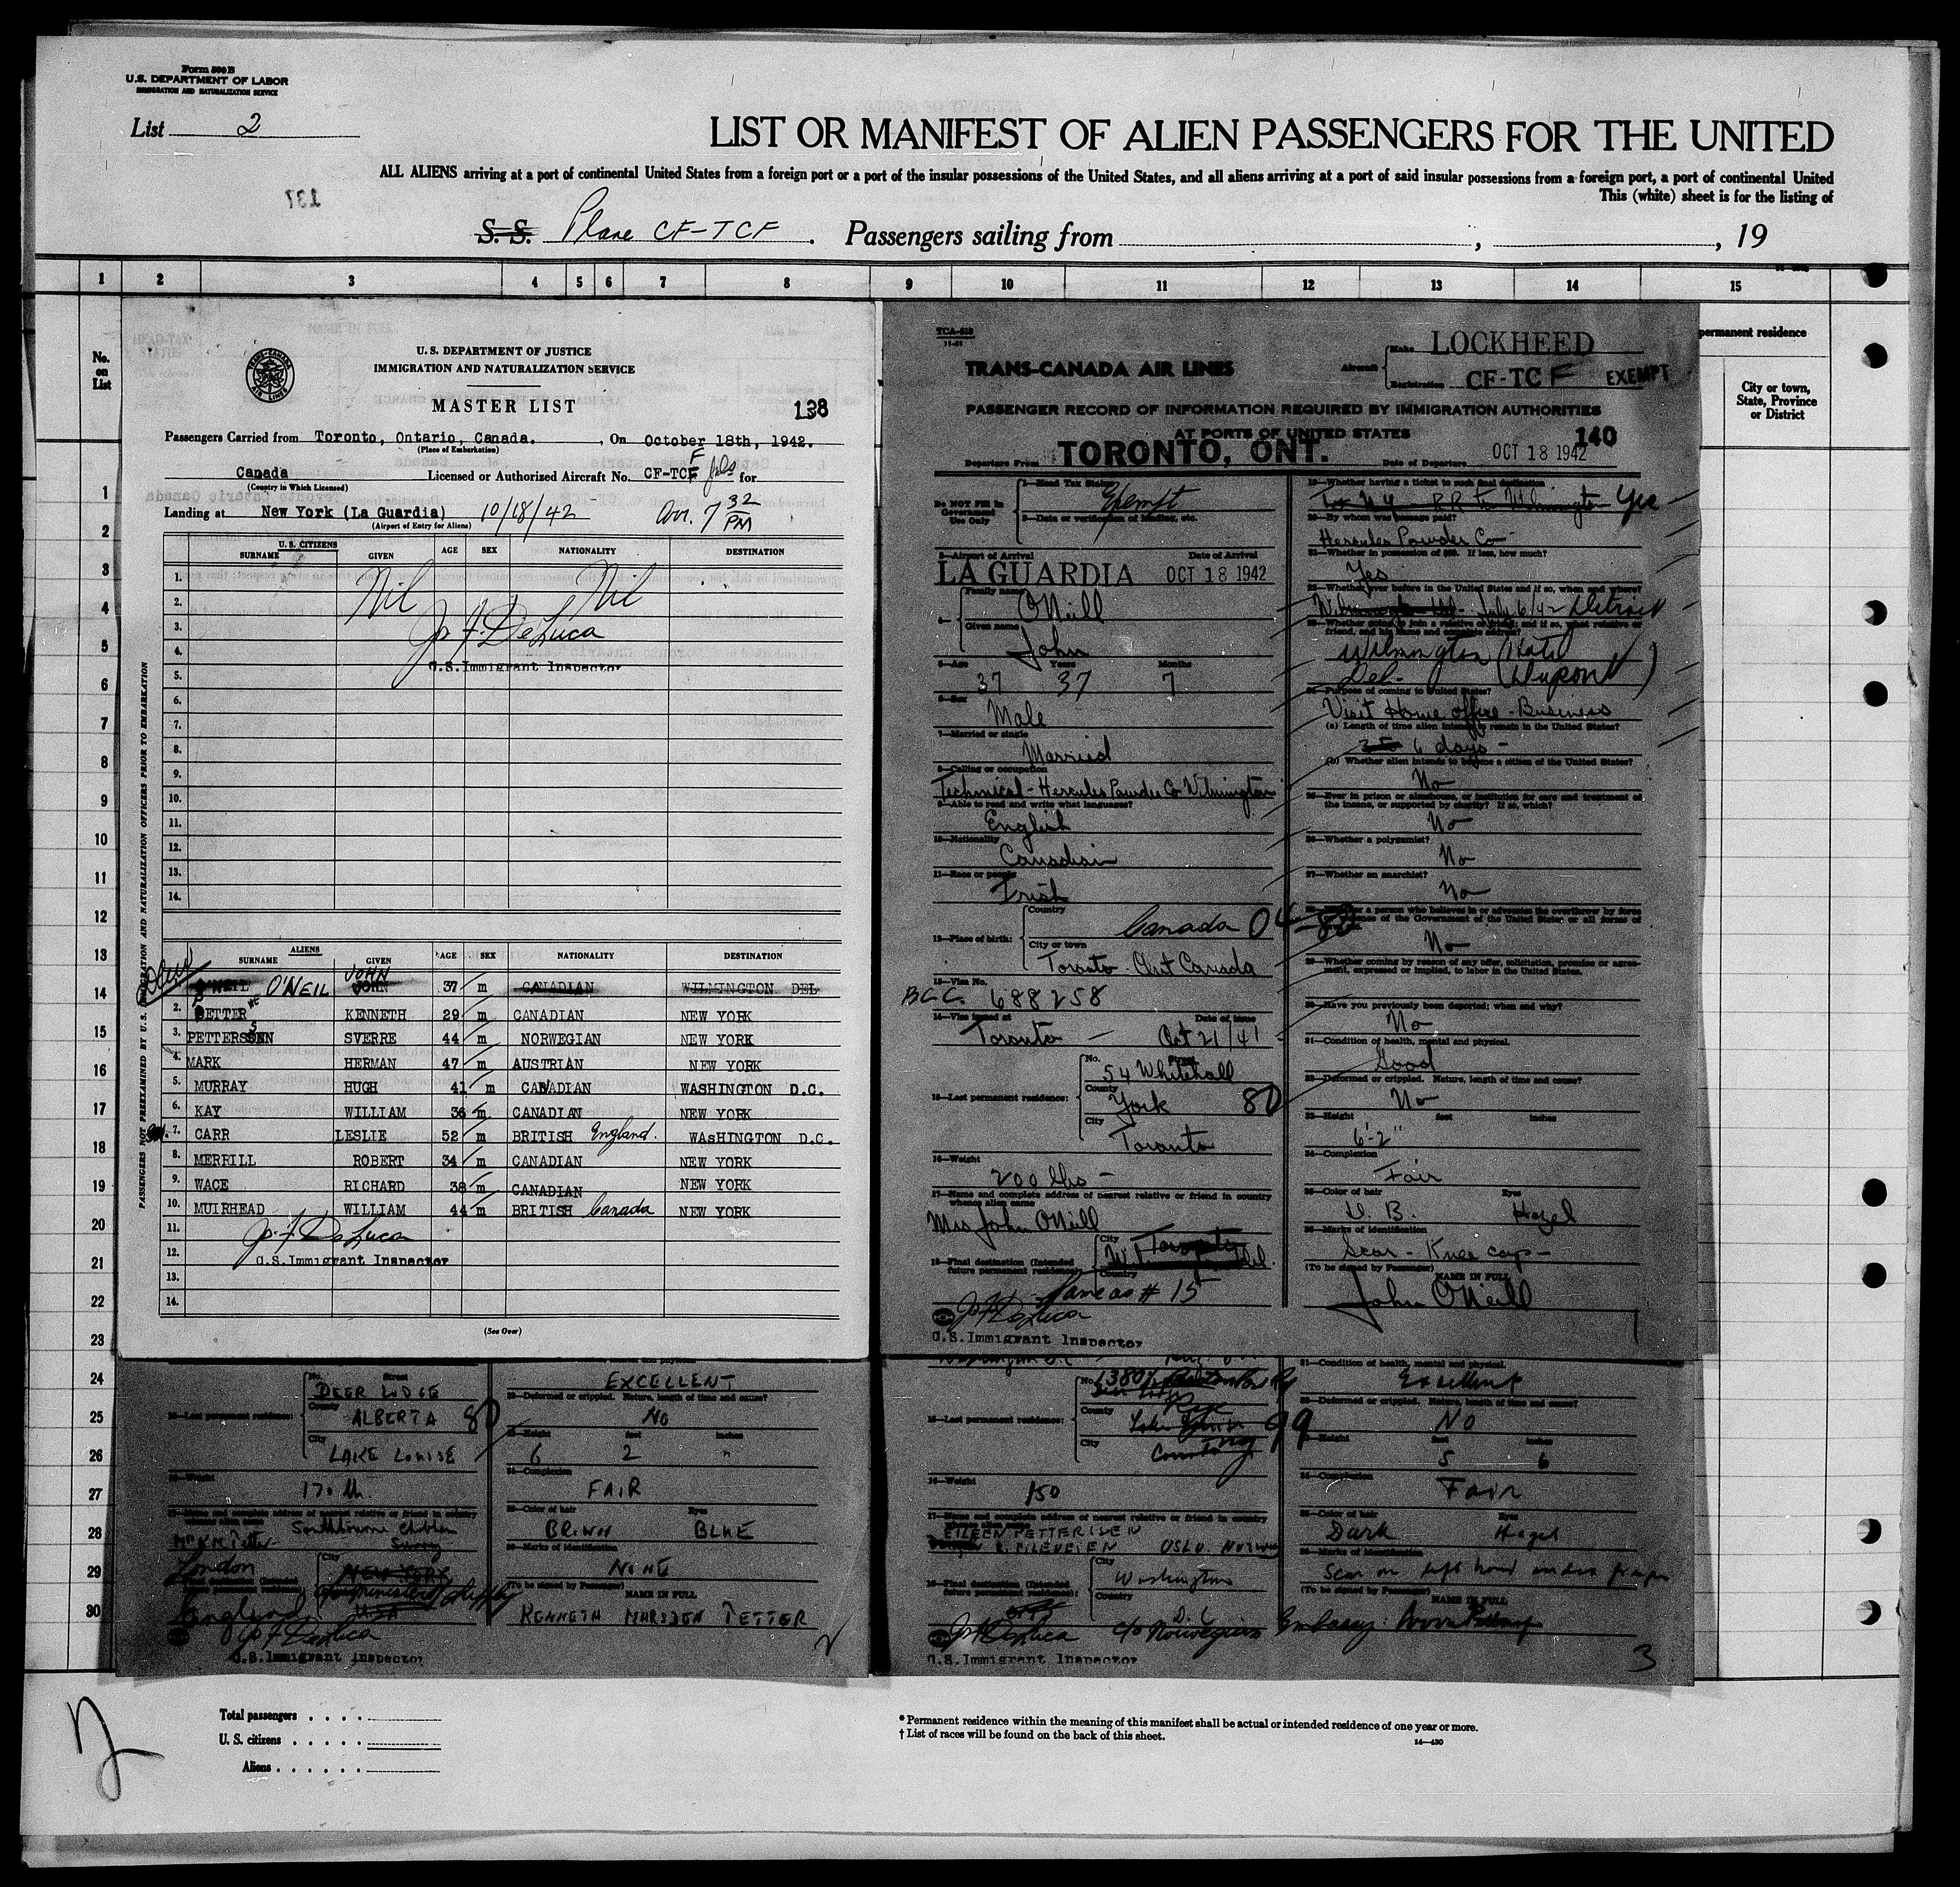 Form 500 B
U.S. DEPARTMENT OF LABOR
IMMIGRATION AND NATURALIZATION SERVICE
List 2
LIST OR MANIFEST OF ALIEN PASSENGERS FOR THE UNITED
ALL ALIENS arriving at a port of continental United States from a foreign port or a port of the insular possessions of the United States, and all aliens arriving at a port of said insular possessions from a foreign port, a port of continental United
This (white) sheet is for the listing of
137
S. S. Plane CF-TCF . Passengers sailing from , , 19
1 2 3 4 5 6 7 8 9 10 11 12 13 14 15
No. on List
permanent residence
City or town, State, Province or District
1
2
3
4
5
6
7
8
9
10
11
12
13
14
15
16
17
18
19
20
21
22
23
24
25
26
27
28
29
30
TRANS-CANADA AIR LINES
U. S. DEPARTMENT OF JUSTICE
IMMIGRATION AND NATURALIZATION SERVICE
MASTER LIST
138
Passengers Carried from Toronto, Ontario, Canada. , On October 18th, 1942.
(Place of Embarkation)
Canada Licensed or Authorized Aircraft No. CF-TCF for
(Country in Which Licensed)
Landing at New York (La Guardia) 10/18/42 Arr. 7 32 PM
(Airport of Entry for Aliens)
U. S. CITIZENS
SURNAME GIVEN AGE SEX NATIONALITY DESTINATION
1.
2. Nil Nil
3. Jo. F. DeLuca
4.
5. U.S. Immigrant Inspector
6.
7.
8.
9.
10.
11.
12.
13.
14.
PASSENGERS NOT PREEXAMINED BY U. S. IMMIGRATION AND NATURALIZATION OFFICERS PRIOR TO EMBARKATION
ALIENS
SURNAME GIVEN AGE SEX NATIONALITY DESTINATION
O'NEIL O'NEIL JOHN JOHN 37 m CANADIAN WILMINGTON DEL
2. PETTER KENNETH 29 m CANADIAN NEW YORK
3. PETTERSEN SVERRE 44 m NORWEGIAN NEW YORK
4. MARK HERMAN 47 m AUSTRIAN NEW YORK
5. MURRAY HUGH 41 m CANADIAN WASHINGTON D.C.
6. KAY WILLIAM 36 m CANADIAN NEW YORK
7. CARR LESLIE 52 m BRITISH England. WASHINGTON D.C.
8. MERRILL ROBERT 34 m CANADIAN NEW YORK
9. WACE RICHARD 38 m CANADIAN NEW YORK
10. MUIRHEAD WILLIAM 44 m BRITISH Canada NEW YORK
11. Jo. F. DeLuca
12. U.S. Immigrant Inspector
13.
14.
(See Over)
TCA-518
11-41
TRANS-CANADA AIR LINES
Aircraft Make LOCKHEED
Registration CF-TCF EXEMPT
PASSENGER RECORD OF INFORMATION REQUIRED BY IMMIGRATION AUTHORITIES
AT PORTS OF UNITED STATES
140
Departure From TORONTO, ONT. Date of Departure OCT 18 1942
Do NOT Fill In Government Use Only
1—Head Tax Status
Exempt
2—Date or verification of landing, etc.
3—Airport of Arrival Date of Arrival
LA GUARDIA OCT 18 1942
4— Family name
O'Neill
Given name
John
5—Age Years Months
37 37 7
6—Sex
Male
7—Married or single
Married
8—Calling or occupation
Technical - Hercules Powder Co Wilmington
9—Able to read and write what languages?
English
10—Nationality
Canadian
11—Race or people
Irish
12—Place of birth: Country
Canada 04-80
City or town
Toronto - Ont Canada
13—Visa No.
B.C.C. 688258
14—Visa issued at Date of Issue
Toronto - Oct 21/41
15—Last permanent residence: No. Street
54 Whitehall
County
York 80
City
Toronto
16—Weight
200 lbs -
17—Name and complete address of nearest relative or friend in country whence alien came
Mrs John O'Neill
18—Final destination (Intended future permanent residence): City
Country
Same as # 15
Jo F DeLuca
U.S. Immigrant Inspector
19—Whether having a ticket to such final destination
to N.Y. - RR to Wilmington - Yes
20—By whom was passage paid?
Hercules Powder Co -
21—Whether in possession of $50. If less, how much?
Yes
22—Whether ever before in the United States and if so, when and where?
July 6/42 - Detroit
23—Whether going to join a relative or friend; and if so, what relative or friend, and his name and complete address?
Wilmington (Hotel
Del. (Dupont)
24—Purpose of coming to United States?
Visit Home office - Business
(a) Length of time alien intends to remain in the United States?
6 days -
(b) Whether alien intends to become a citizen of the United States?
No
25—Ever in prison or almshouse, or institution for care and treatment of the insane, or supported by charity? If so, which?
No
26—Whether a polygamist?
No
27—Whether an anarchist?
No
28—Whether a person who believes in or advocates the overthrow by force or violence of the Government of the United States or all forms of
No
29—Whether coming by reason of any offer, solicitation, promise or agreement, expressed or implied, to labor in the United States.
30—Have you previously been deported; when and why?
No
31—Condition of health, mental and physical.
Good
32—Deformed or crippled. Nature, length of time and cause?
No
33—Height feet inches
6'-2"
34—Complexion
Fair
35—Color of hair Eyes
D. B. Hazel
36—Marks of identification
Scar - Knee cap -
(To be signed by Passenger) NAME IN FULL
John O'Neill
1
15—Last permanent residence: No. Street
DEER LODGE
County
ALBERTA 80
City
LAKE LOUISE
16—Weight
170 lb.
17—Name and complete address of nearest relative or friend in country
London
City
NEW YORK
England
USA
Jo F DeLuca
U.S. Immigrant Inspector
EXCELLENT
32—Deformed or crippled. Nature, length of time and cause?
NO
33—Height feet inches
6 2 "
34—Complexion
FAIR
35—Color of hair Eyes
BROWN BLUE
36—Marks of identification
NONE
(To be signed by Passenger) NAME IN FULL
KENNETH MARSDEN PETTER
2
No.
Rye
15—Last permanent residence: County
99
City
16—Weight
150
17—Name and complete address of nearest relative or friend in country whence alien came
EILEEN PETTERSEN
OSLO. NORWAY
18—Final destination (Intended future permanent residence): City
Washington
Country
D.C.
Jo F DeLuca c/o Norwegian Embassy.
U.S. Immigrant Inspector
31—Condition of health, mental and physical.
Excellent
32—Deformed or crippled. Nature, length of time and cause?
NO
33—Height feet inches
5 6
34—Complexion
Fair
35—Color of hair Eyes
Dark Hazel
36—Marks of identification
Scar on left hand index finger
(To be signed by Passenger) NAME IN FULL
3
2
Total passengers . . . .
U. S. citizens . . . . .
Aliens . . . . . .
* Permanent residence within the meaning of this manifest shall be actual or intended residence of one year or more.
† List of races will be found on the back of this sheet.
14—430